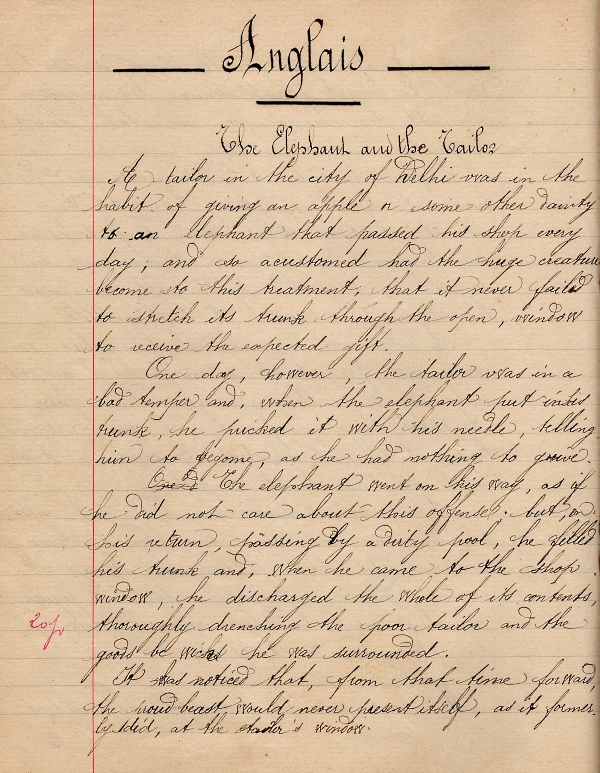 Anglais
The Elephant and the Tailor
A tailor in the city of Delhi was in the
habit of giving an apple or some other dainty
to an elephant that passed his shop every
day; and so acustomed had the huge creature
become to this treatment, that it never failed
to stretch its trunk through the open, window
to receive the expected gift.
One day, however, the tailor was in a
bad temper and, when the elephant put in his
trunk, he pricked it with his needle, telling
him to begone, as he had nothing to give.
The elephant went on his way, as if
he did not care about this offense. but, on
his return, passing by a dirty pool, he filled
his trunk and, when he came to the shop
window, he discharged the whole of its contents,
thoroughly drenching the poor tailor and the
goods be wich he was surrounded.
It was noticed that, from that time forward,
the proud beast would never present itself, as it former-
ly did, at the tailor's window.